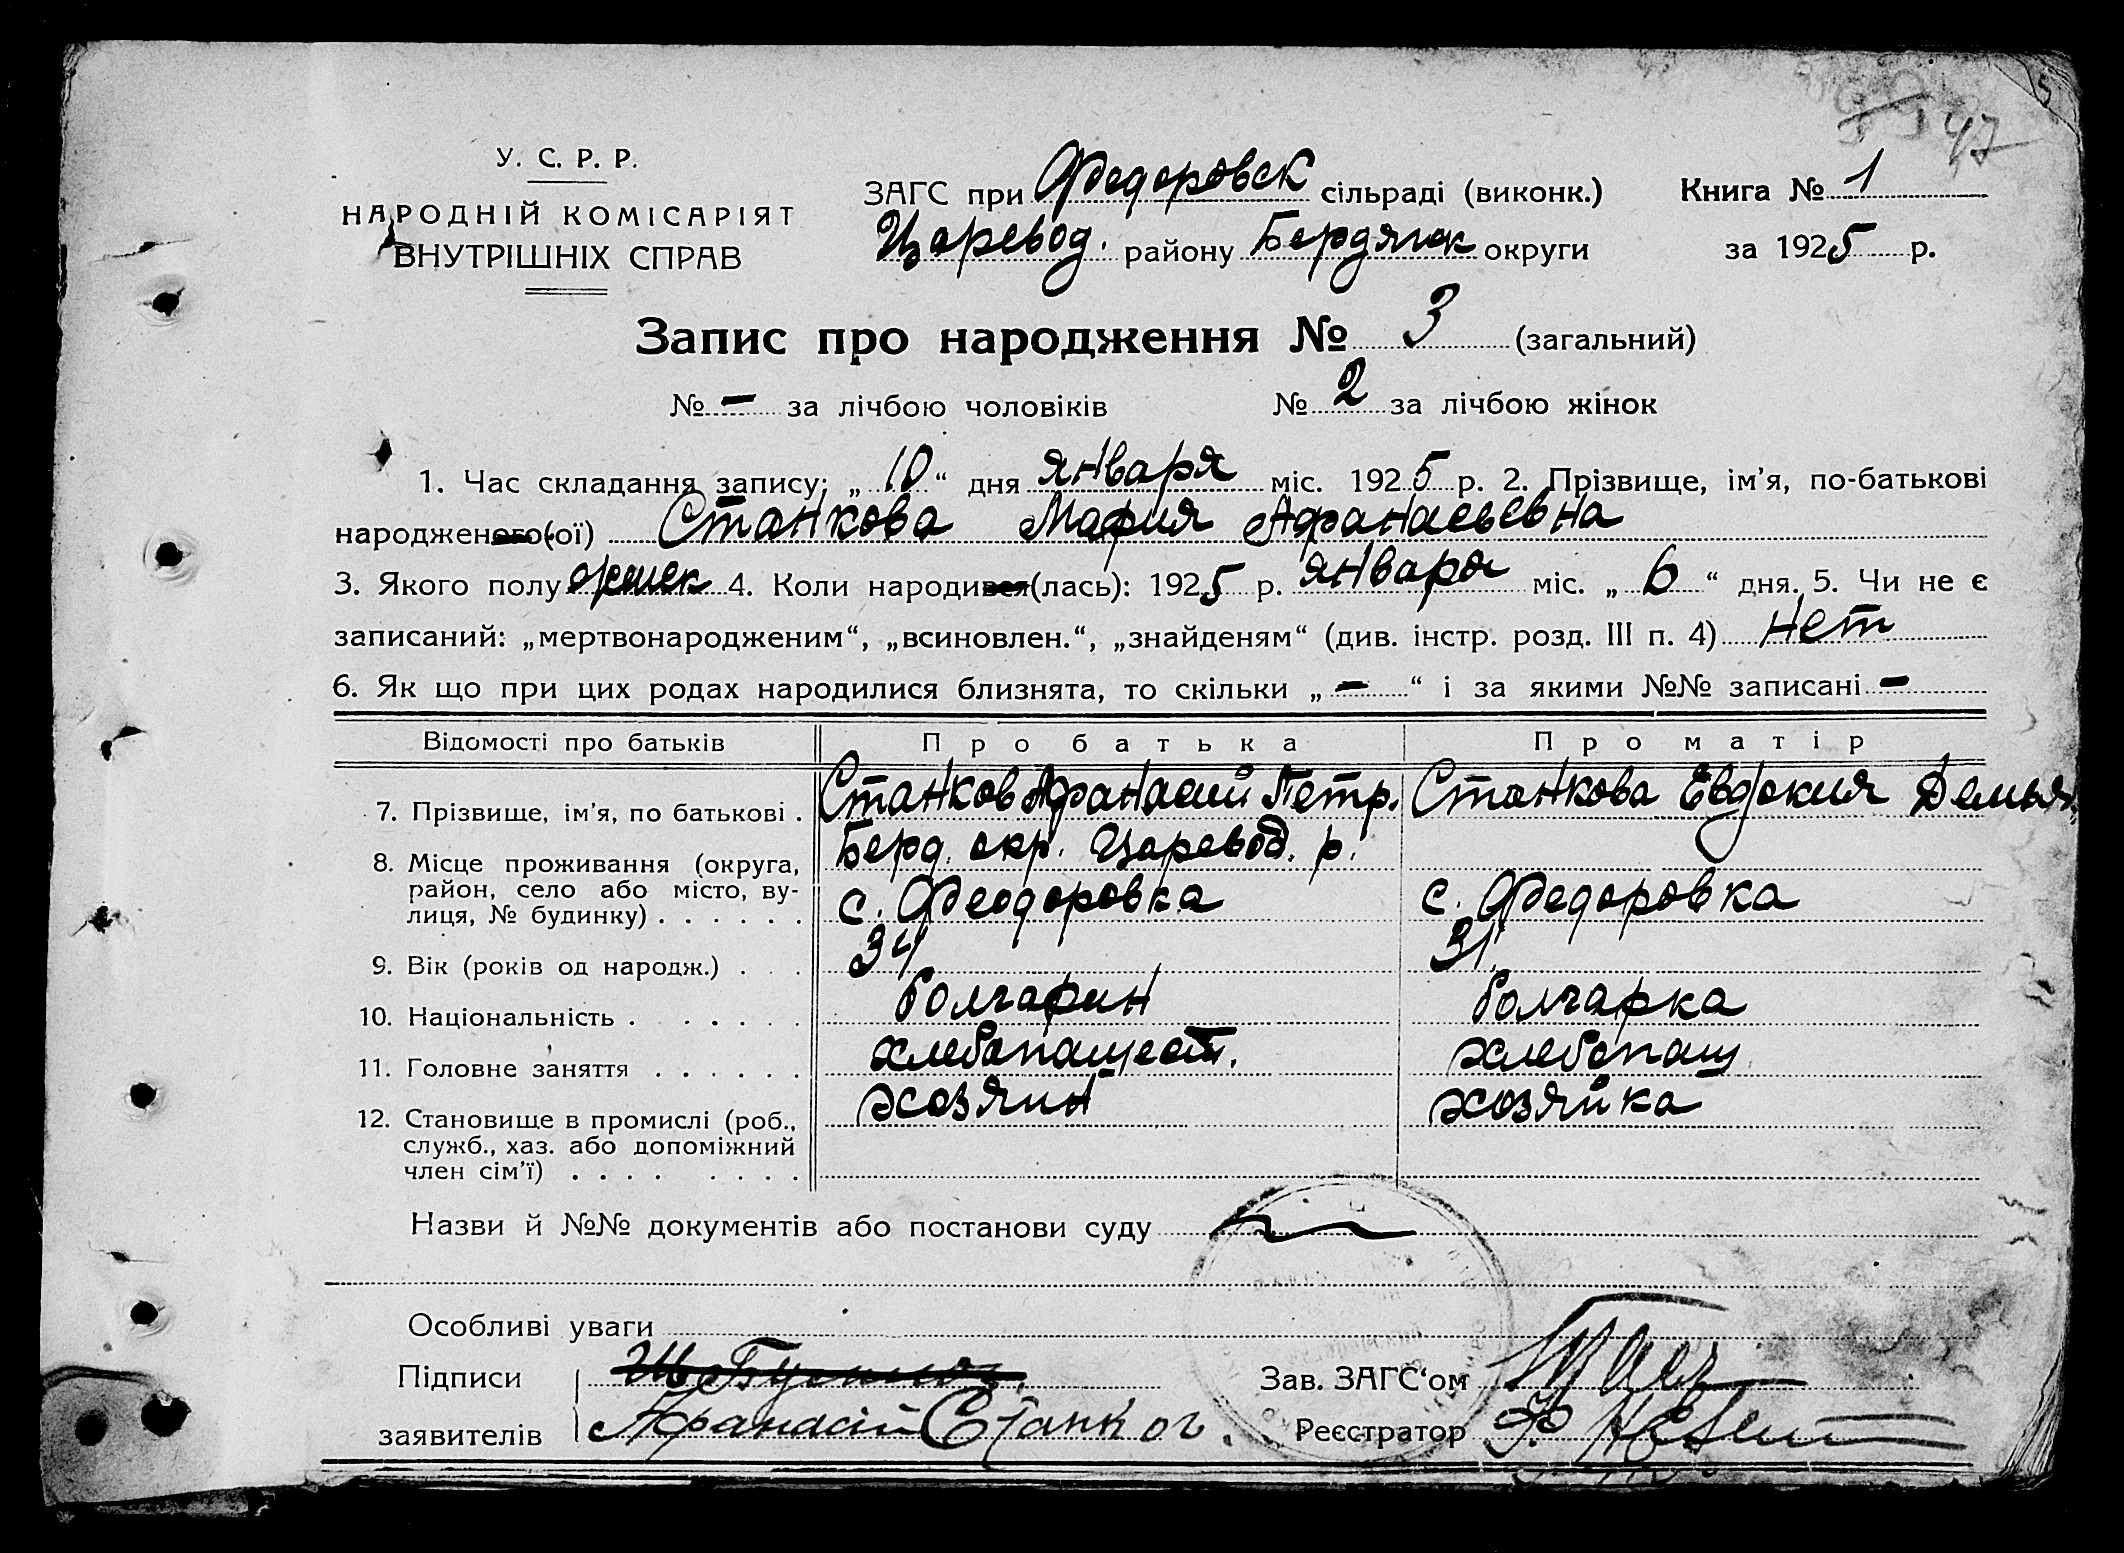 47
У. С. Р. Р.
НАРОДНІЙ КОМІСАРІЯТ
ВНУТРІШНІХ СПРАВ
ЗАГС при Федоровск сільраді (виконк.) Книга № 1
Царевод. району Бердянск округи за 1925 р.
Запис про народження № 3 (загальний)
№ – за лічбою чоловіків № 2 за лічбою жінок
1. Час складання запису: „10“ дня января міс. 1925 р. 2. Прізвище, ім'я, по-батькові
народженого(ої) Станкова Мария Афанасьевна
3. Якого полу женск 4. Коли народився(лась): 1925 р. января міс. „6“ дня. 5. Чи не є
записаний: „мертвонародженим“, „всиновлен.“, „знайденям“ (див. інстр. розд. III п. 4) Нет
6. Як що при цих родах народилися близнята, то скільки „–“ і за якими №№ записані –
Відомості про батьків Про батька Про матір
7. Прізвище, ім'я, по батькові . Станков Афанасий Петр. Станкова Евдокия Демьян.
8. Місце проживання (округа, Берд. окр. Царевод. р.
район, село або місто, ву-
лиця, № будинку) . . . . . . с. Феодоровка с. Федоровка
9. Вік (років од народж.) . . . 34 31
10. Національність . . . . . . болгарин болгарка
11. Головне заняття . . . . . . хлебопашест. хлебопаш
12. Становище в промислі (роб., хозяин хозяйка
служб., хаз. або допоміжний
член сім'ї) . . . . . . . .
Назви й №№ документів або постанови суду
Особливі уваги
Підписи Зав. ЗАГС‘ом
заявителів Афанасій Станков. Реєстратор